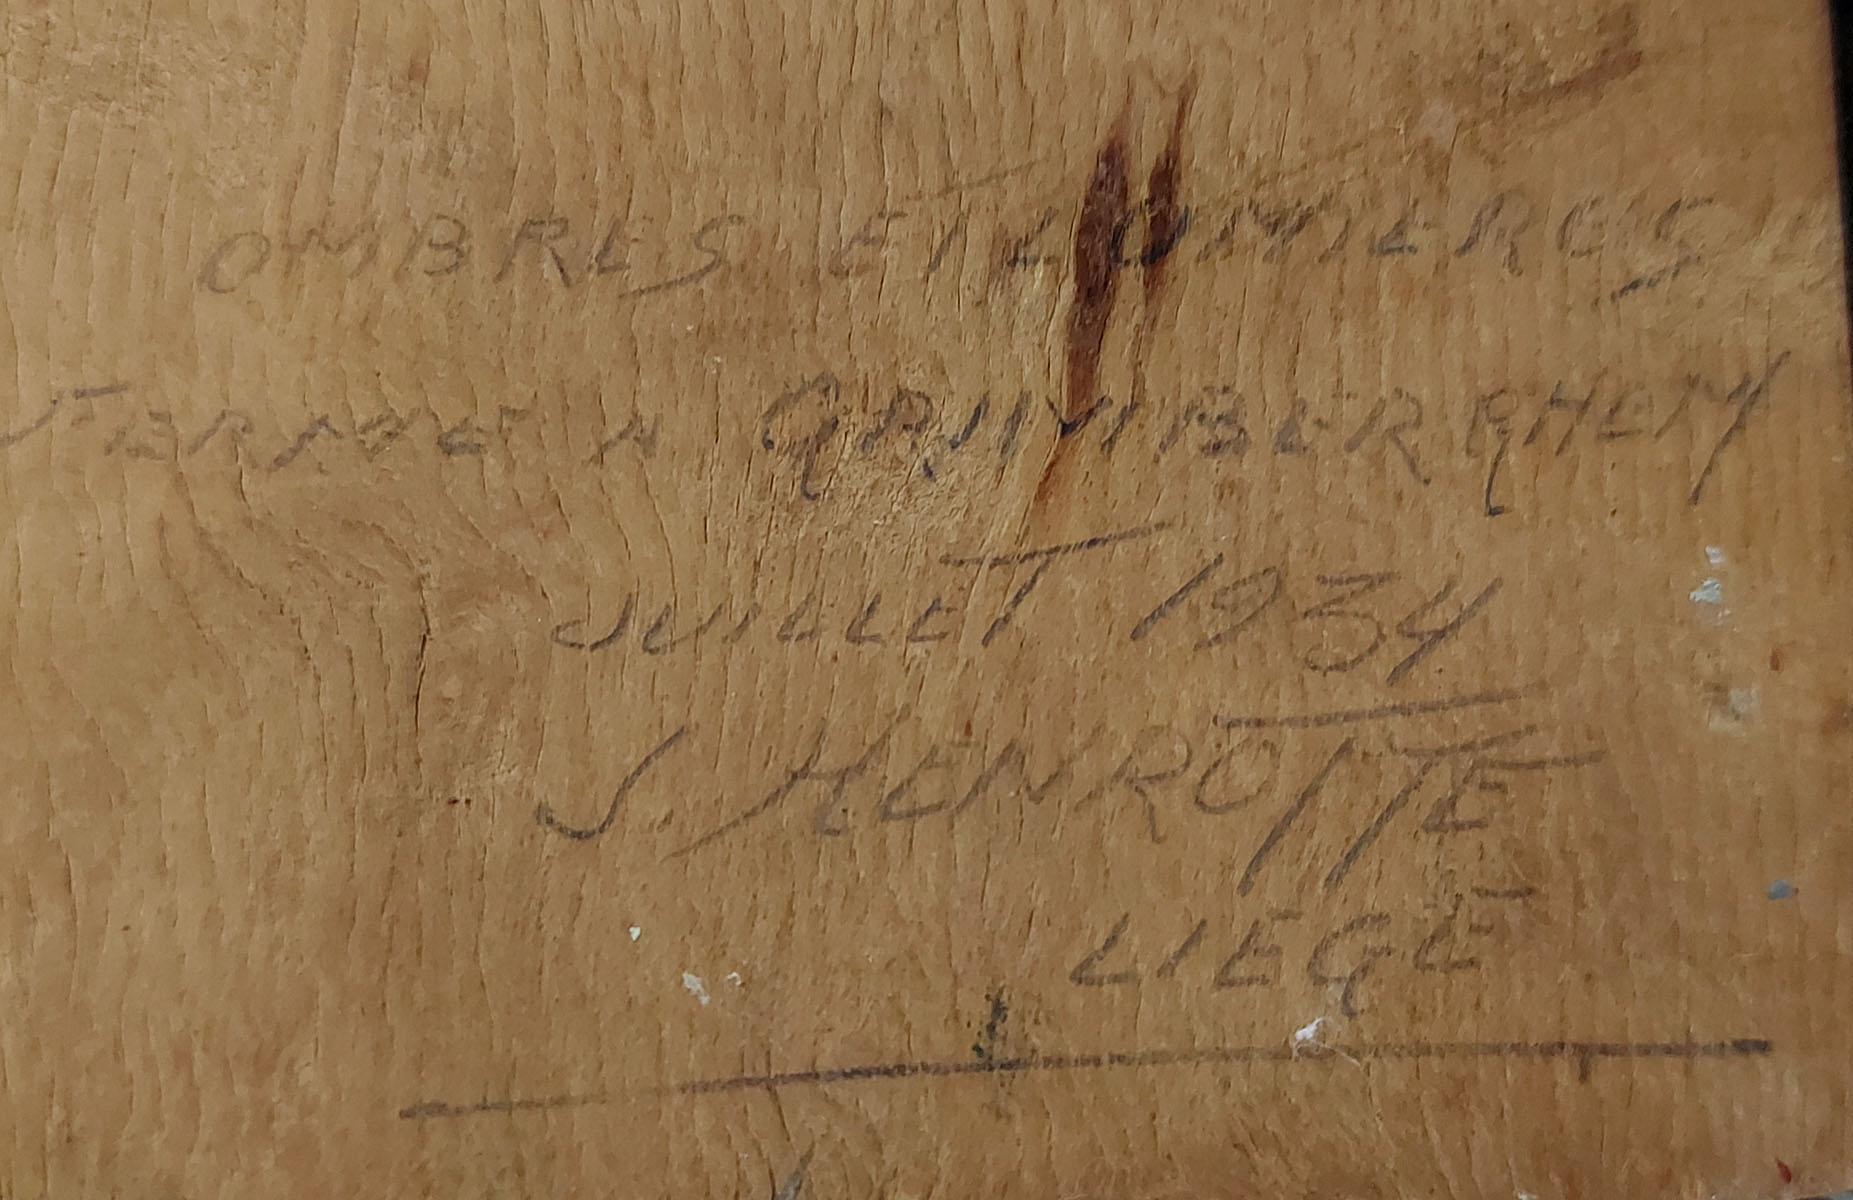 OMBRES ET LUMIERES
FERME A GRIMBERGHEM
JUILLET 1934
J. HENROTTE
LIEGE